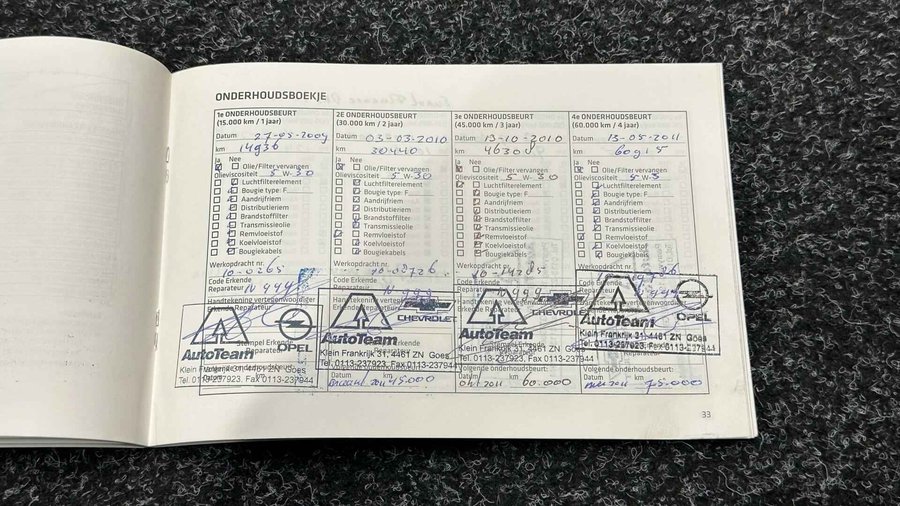 ONDERHOUDSBOEKJE
1e ONDERHOUDSBEURT
(15.000 km / 1 jaar)
Datum 27-05-2009
km 14936
Ja Nee
Olie/Filter vervangen
Olieviscositeit 5 W-30
Luchtfilterelement
Bougie type: F
Aandrijfriem
Distributieriem
Brandstoffilter
Transmissieolie
Remvloeistof
Koelvloeistof
Bougiekabels
Werkopdracht nr.
10-0265
Code Erkende
Reparateur
Handtekening vertegenwoordiger
Erkende Reparateur
AutoTeam OPEL
Klein Frankrijk 31, 4461 ZN Goes
Tel. 0113-237923, Fax 0113-237944
Datum km
2E ONDERHOUDSBEURT
(30.000 km / 2 jaar)
Datum 03-03-2010
km 30440
Ja Nee
Olie/Filter vervangen
Olieviscositeit 5 W-30
Luchtfilterelement
Bougie type: F
Aandrijfriem
Distributieriem
Brandstoffilter
Transmissieolie
Remvloeistof
Koelvloeistof
Bougiekabels
Werkopdracht nr.
10-02726
Code Erkende
Reparateur
Handtekening vertegenwoordiger
AutoTeam CHEVROLET
Klein Frankrijk 31, 4461 ZN Goes
Tel. 0113-237923, Fax 0113-237944
Volgende onderhoudsbeurt:
Datum km
45.000
3e ONDERHOUDSBEURT
(45.000 km / 3 jaar)
Datum 19-10-2010
km
Ja Nee
Olie/Filter vervangen
Olieviscositeit 5 W-30
Luchtfilterelement
Bougie type: F
Aandrijfriem
Distributieriem
Brandstoffilter
Transmissieolie
Remvloeistof
Koelvloeistof
Bougiekabels
Werkopdracht nr.
Code Erkende
Reparateur
Handtekening vertegenwoordiger
AutoTeam CHEVROLET
Klein Frankrijk 31, 4461 ZN Goes
Tel. 0113-237923, Fax 0113-237944
Volgende onderhoudsbeurt:
Datum km
60.000
4e ONDERHOUDSBEURT
(60.000 km / 4 jaar)
Datum 13-05-2011
km
Ja Nee
Olie/Filter vervangen
Olieviscositeit 5 W-
Luchtfilterelement
Bougie type: F
Aandrijfriem
Distributieriem
Brandstoffilter
Transmissieolie
Remvloeistof
Koelvloeistof
Bougiekabels
Werkopdracht nr.
Code Erkende
Reparateur
AutoTeam OPEL
Klein Frankrijk 31, 4461 ZN Goes
Tel. 0113-237923, Fax 0113-237944
Volgende onderhoudsbeurt:
Datum km
75.000
33